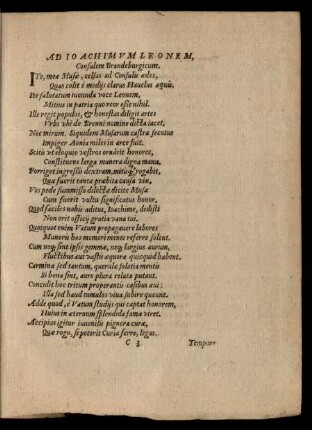 AD IOACHIMVM LEONEM,
Consulem Brandeburgicum.
ITe, meæ Musæ, celsas ad Consulis ædes,
Quas colit è modijs clarus Hauelus aquis.
Ite salutatum iucunda voce Leonem,
Mitius in patria quo reor esse nihil.
Ille regit populos, & honestas diligit artes
Vrbs vbi de Brenni nomine dicta iacet.
Nec mirum. Siquidem Musarum castra secutus
Impiger Aonias miles in arce fuit.
Scitis vt eloquio vestros ornârit honores,
Constituens larga munera digna manu.
Porriget ingressis dextram, mitisque rogabit,
Quæ fuerit tanta præbita causa viæ.
Vos pede summisso dilecta dicite Musæ
Cum fuerit vultu significatus honor,
Quod faciles nobis aditus, Ioachime, dedisti
Non erit officij gratia vana tui.
Quotquot enim Vatum propagauere labores
Muneris hos memeri mente referre solent.
Cum neque sint ipsis gemmæ, neque largius aurum,
Fluctibus aut vasti æquora quicquid habent.
Carmina sed tantum, querulæ solatia mentis
Si bona sint, auro plura relata putant.
Concidit hoc tritum properantis casibus æui:
Illa sed haud tumulos viua subire queant.
Adde quod, ô Vatum studijs qui captat honorem,
Huius in æternum splendida fama viret.
Accipias igitur iuuenilis pignora curæ,
Quæ rogo, si poterit Curia ferre, legas.
C 3 Tempore